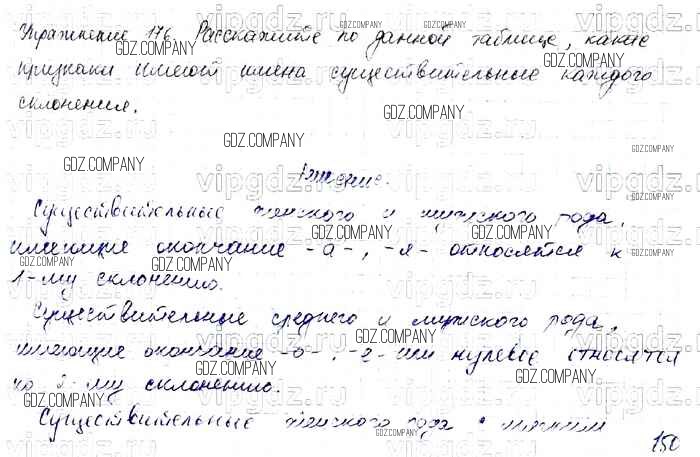 Упражнение 176. Расскажите по данной таблице, какие
признаки имеют имена существительные каждого
склонения.
Решение.
Существительные женского и мужского рода,
имеющие окончание -а-, -я- относятся к
1-му склонению.
Существительные среднего и мужского рода,
имеющие окончание -о-, -е- или нулевое относятся
ко 2-му склонению.
Существительные женского рода с
150